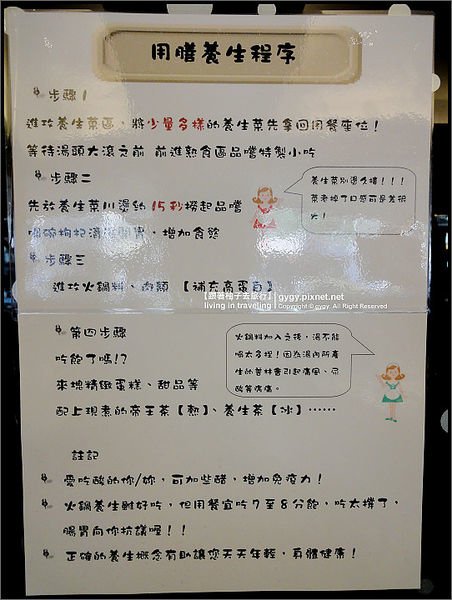 用膳養生程序
步驟1
進攻養生菜區，將少量多樣的養生菜先拿回用餐座位！
等待湯頭大滾之前 前進熱食區品嚐特製小吃
步驟二
先放養生菜川燙約15秒撈起品嚐
喝碗枸杞清湯開胃，增加食慾
養生菜別燙久摟！！！
菜老掉了口感可是差很
大！
步驟三
進攻火鍋料、肉類 【補充高蛋白】
【跟著柚子去旅行】 gygy.pixnet.net
living in traveling Copyright © gygy. All Right Reserved
第四步驟
吃飽了嗎!?
來塊精緻蛋糕、甜品等
配上現煮的帝王茶【熱】、養生茶【冰】……
火鍋料加入之後，湯不能
喝太多摟！因為湯內所產
生的普林會引起痛風、尿
酸等疾病。
註記
愛吃酸的你/妳，可加些醋，增加免疫力！
火鍋養生雖好吃，但用餐宜吃7至8分飽，吃太撐了，
腸胃向你抗議喔！！
正確的養生概念有助讓您天天年輕，身體健康！